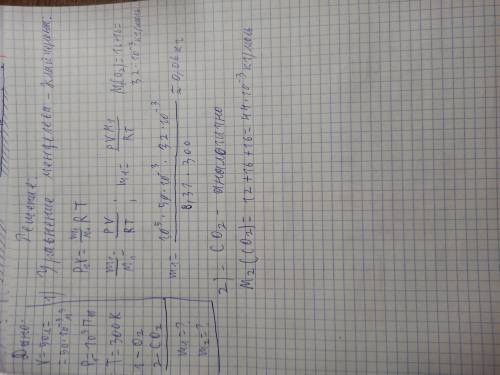 Дано:
V=50л=
=50·10⁻³м³
P=10⁵Па
T=300К
1-O₂
2-CO₂
m₁=?
m₂=?
Решение:
1) Уравнение менделеева-Клайперона:
P₁V= m₁/M₁ RT
m₁/M₁ = PV/RT ; m₁= PVM₁/RT
M(O₂)=16+16=
32·10⁻³кг/моль
m₁= 10⁵·50·10⁻³·32·10⁻³ / 8,31·300 ≈0,06кг
2) - CO₂ - аналогично
M₂(CO₂)= 12+16+16=44·10⁻³кг/моль